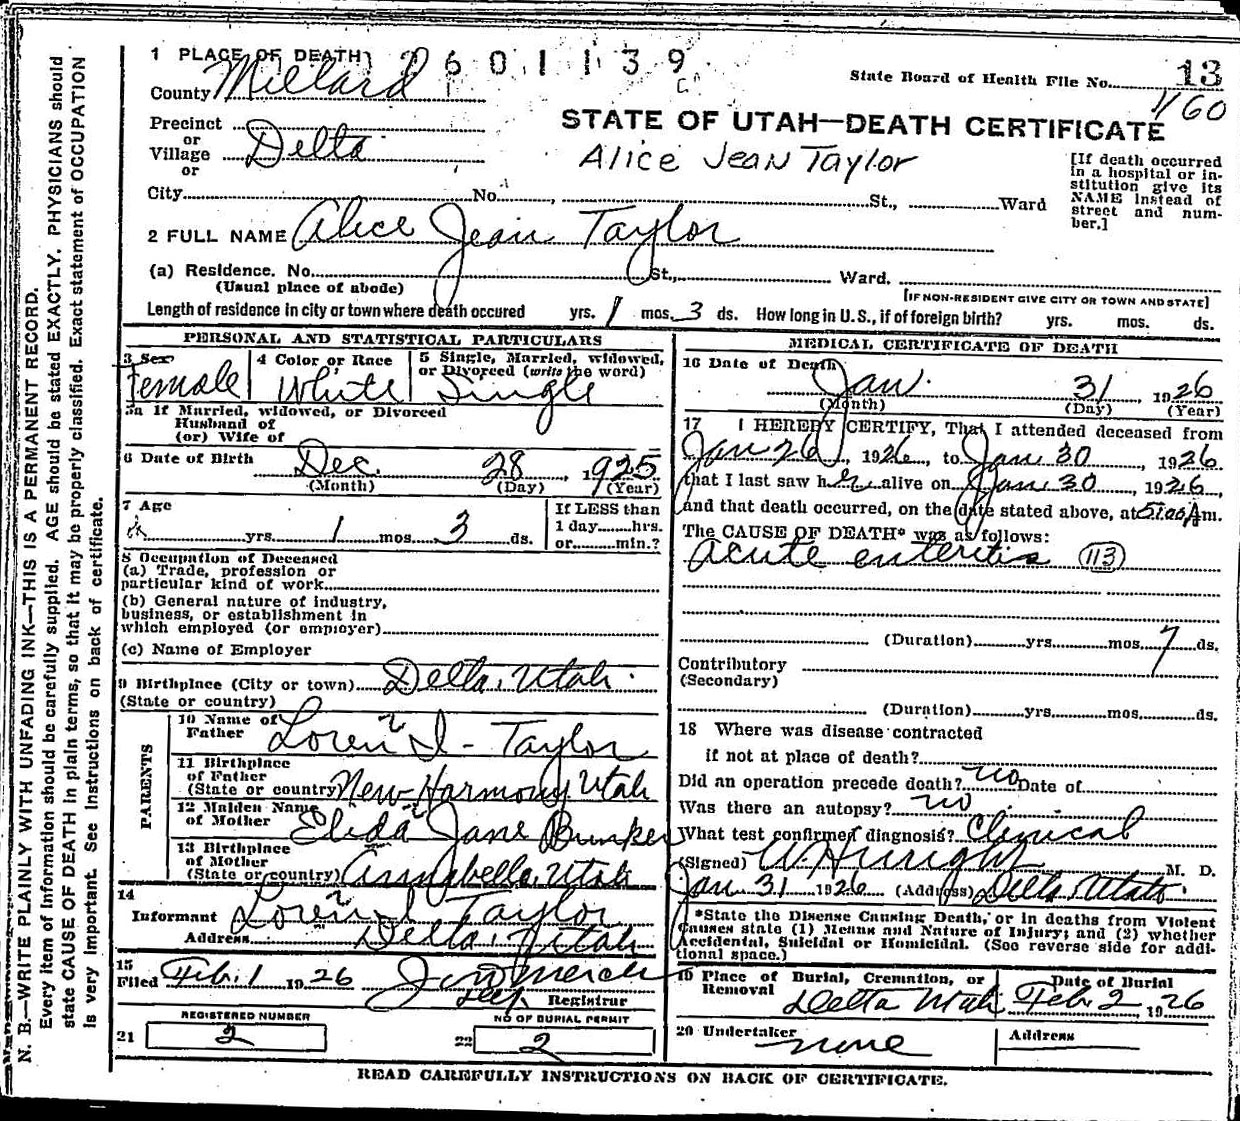 1 PLACE OF DEATH 2 6 0 1 1 3 9
State Board of Health File No. 13
County Millard
1/60
STATE OF UTAH—DEATH CERTIFICATE
Precinct
or
Village Delta
or
Alice Jean Taylor
[If death occurred
in a hospital or in-
stitution give its
NAME instead of
street and num-
ber.]
City No. , St., Ward
2 FULL NAME Alice Jean Taylor
(a) Residence. No. St., Ward.
(Usual place of abode)
[IF NON-RESIDENT GIVE CITY OR TOWN AND STATE]
Length of residence in city or town where death occured yrs. 1 mos. 3 ds. How long in U.S., if of foreign birth? yrs. mos. ds.
PERSONAL AND STATISTICAL PARTICULARS
3 Sex Female
4 Color or Race White
5 Single, Married, widowed,
or Divorced (write the word)
Single
5a If Married, widowed, or Divorced
Husband of
(or) Wife of
6 Date of Birth Dec. 28, 1925
(Month) (Day) (Year)
7 Age
yrs. 1 mos. 3 ds.
If LESS than
1 day hrs.
or min.?
8 Occupation of Deceased
(a) Trade, profession or
particular kind of work
(b) General nature of industry,
business, or establishment in
which employed (or employer)
(c) Name of Employer
9 Birthplace (City or town) Delta, Utah.
(State or country)
PARENTS
10 Name of
Father Loren I - Taylor
11 Birthplace
of Father
(State or country) New Harmony Utah
12 Maiden Name
of Mother Elida Jane Bunker
13 Birthplace
of Mother
(State or country) Annabella, Utah
14
Informant Loren I Taylor
Address Delta, Utah
15
Filed Feb. 1 1926
Dep. Registrar
REGISTERED NUMBER
21 2
NO OF BURIAL PERMIT
22 2
MEDICAL CERTIFICATE OF DEATH
16 Date of Death
Jan. 31 1926
(Month) (Day) (Year)
17 I HEREBY CERTIFY, That I attended deceased from
Jan 26, 1926, to Jan 30, 1926
that I last saw her alive on Jan 30, 1926,
and that death occurred, on the date stated above, at 5:00 A m.
The CAUSE OF DEATH* was as follows:
Acute enteritis (113)
(Duration) yrs. mos. 7 ds.
Contributory
(Secondary)
(Duration) yrs. mos. ds.
18 Where was disease contracted
if not at place of death?
Did an operation precede death? no Date of
Was there an autopsy? no
What test confirmed diagnosis? Clinical
(Signed) M. D.
Jan 31 1926 (Address) Delta, Utah.
*State the Disease Causing Death, or in deaths from Violent
Causes state (1) Means and Nature of Injury; and (2) whether
Accidental, Suicidal or Homicidal. (See reverse side for addi-
tional space.)
19 Place of Burial, Cremation, or
Removal
Delta Utah
Date of Burial
Feb 2, 1926
20 Undertaker
none
Address
READ CAREFULLY INSTRUCTIONS ON BACK OF CERTIFICATE.
N. B.—WRITE PLAINLY WITH UNFADING INK—THIS IS A PERMANENT RECORD.
Every item of information should be carefully supplied. AGE should be stated EXACTLY. PHYSICIANS should
state CAUSE OF DEATH in plain terms, so that it may be properly classified. Exact statement of OCCUPATION
is very important. See instructions on back of certificate.